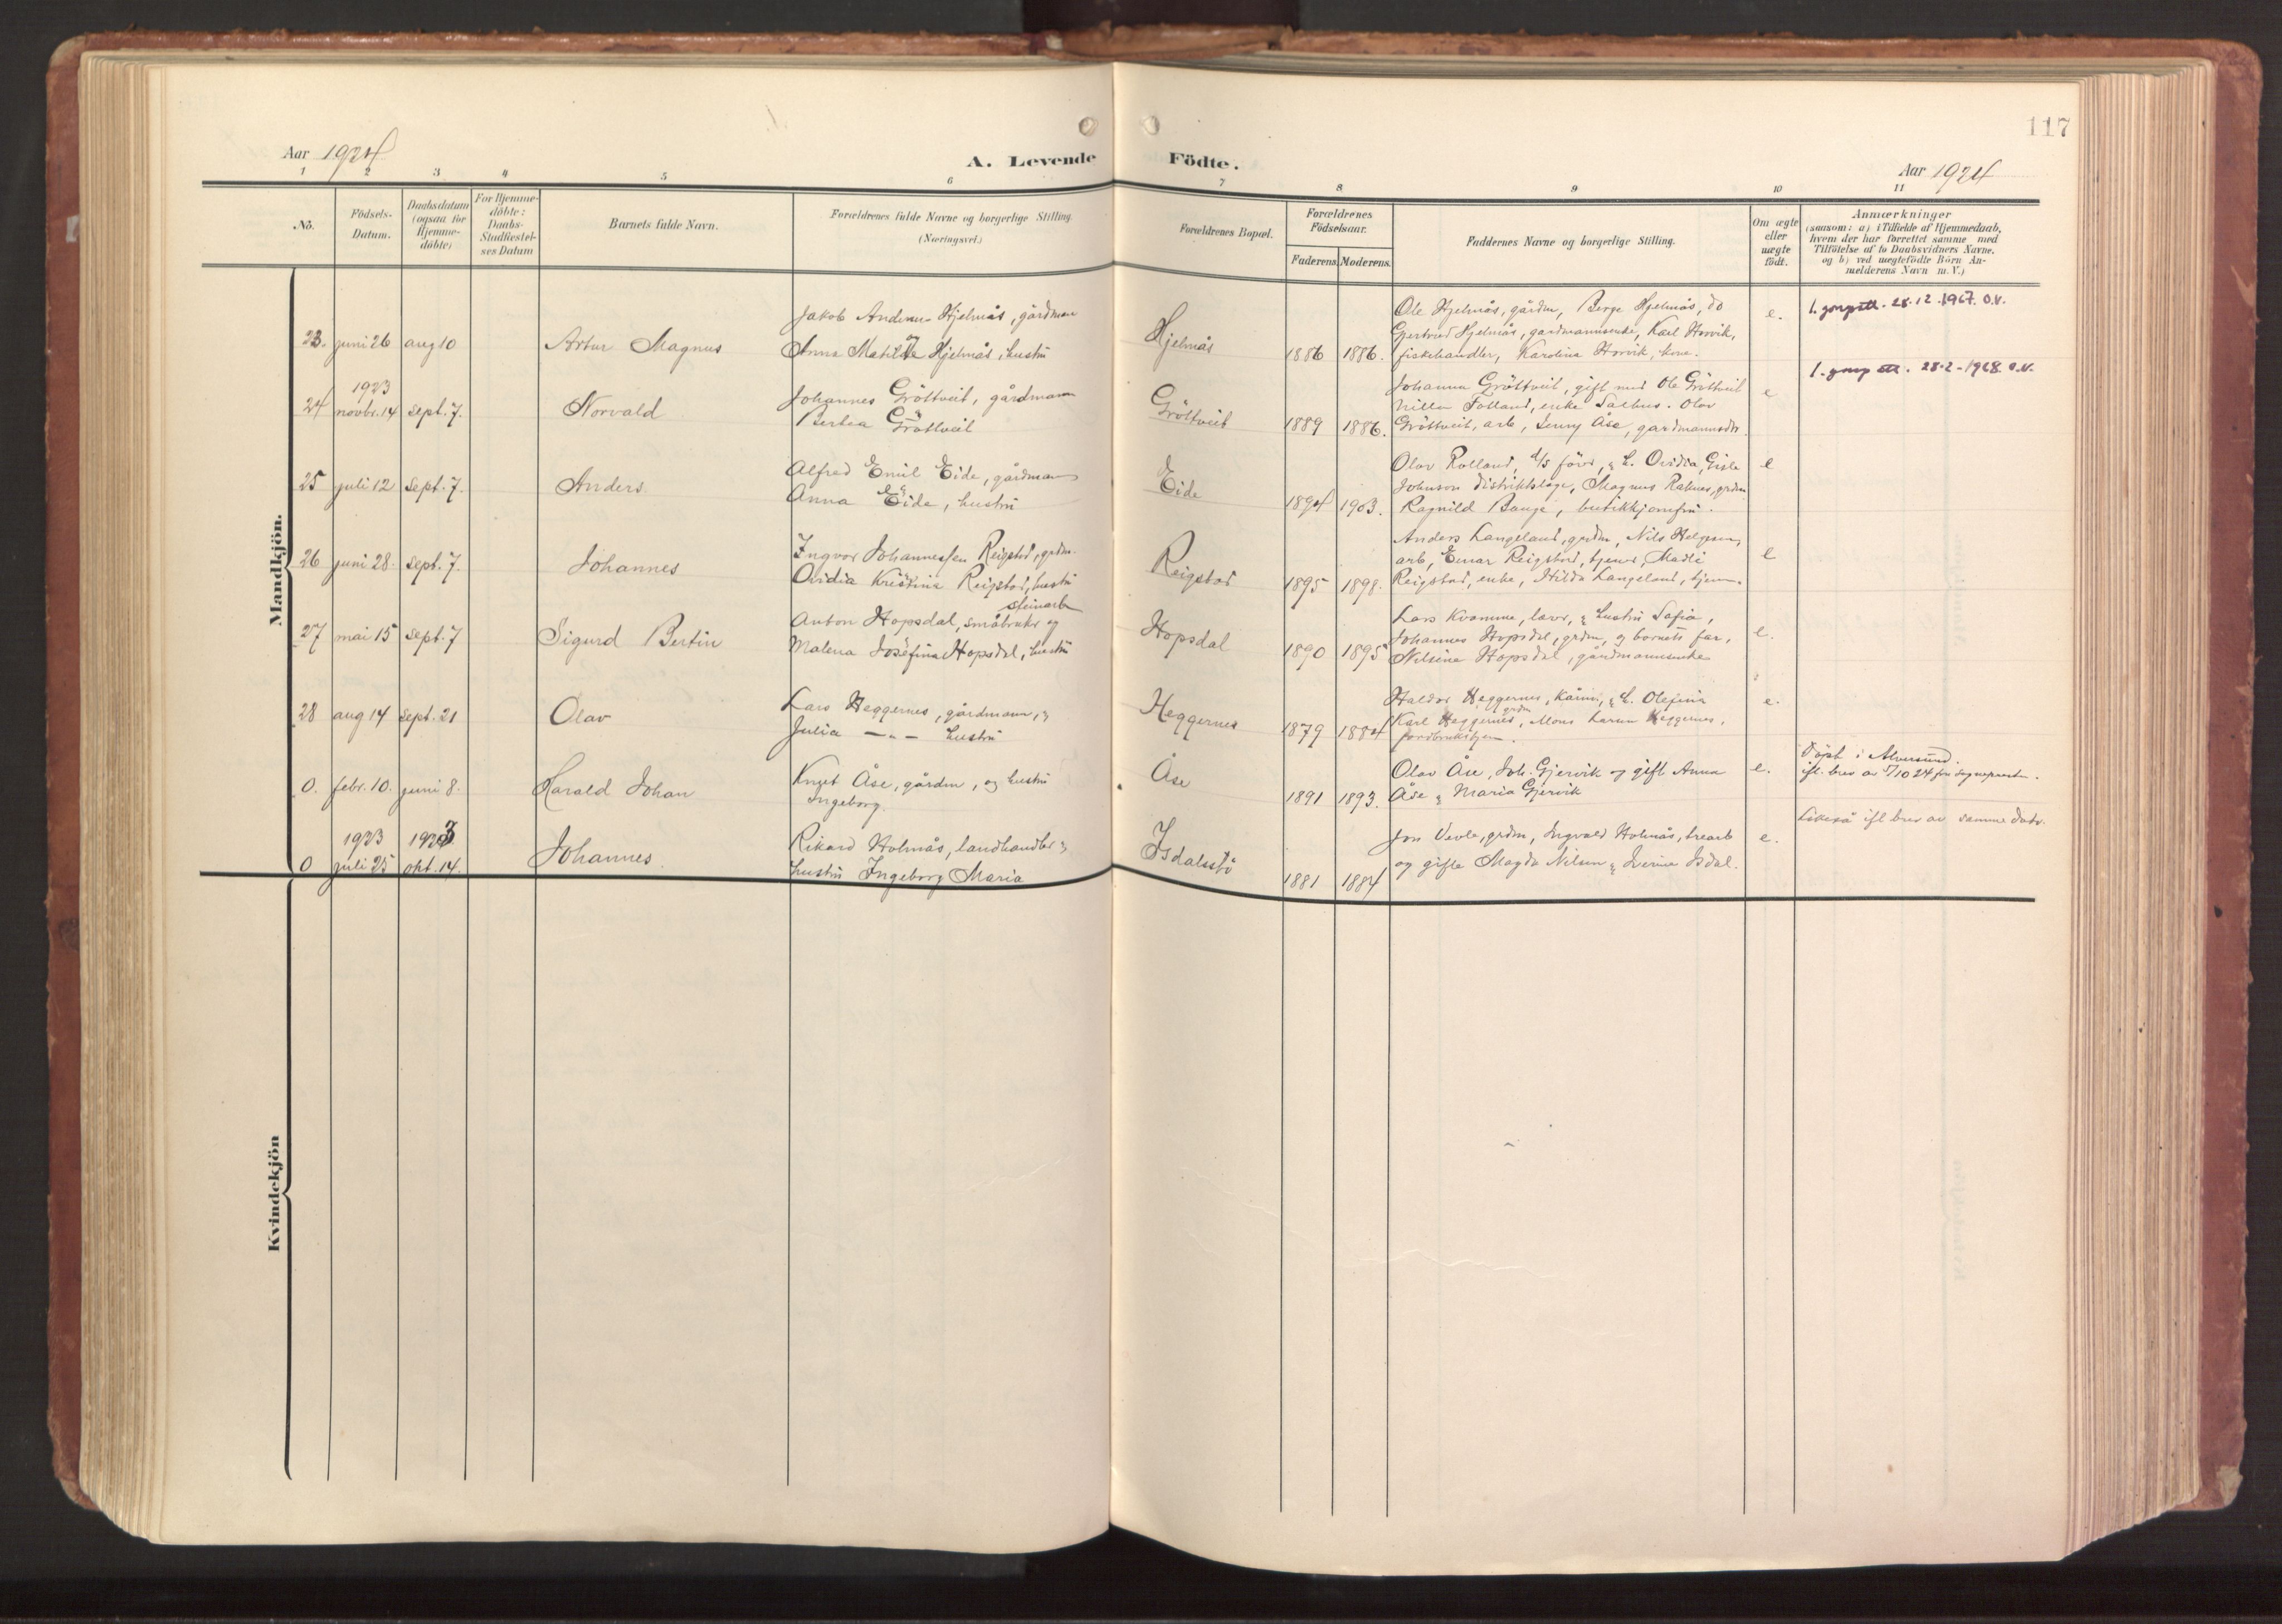 117
Aar 1924
A. Levende
Födte.
Aar 1924
1 2 3 4 5 6 7 8 9 10 11
No.
Födsels-
Datum.
Daabsdatum
(ogsaa for
Hjemme-
döbte)
For Hjemme-
döbte:
Daabs-
Stadfæstel-
ses Datum
Barnets fulde Navn.
Forældrenes fulde Navne og borgerlige Stilling.
(Næringsvei.)
Forældrenes Bopæl.
Forældrenes
Födselsaar.
Faderens.
Moderens.
Faddernes Navne og borgerlige Stilling.
Om ægte
eller
uægte
födt.
Anmærkninger
(saasom: a) i Tilfælde af Hjemmedaab,
hvem der har forrettet samme med
Tilföielse af to Daabsvidners Navne.
og b) ved uægtefödte Börn An-
melderens Navn m. V.)
Mandkjön.
23. juni 26 aug 10
Artur Magnus
Jakob Andersen Hjelmås, gårdman
og
Anna Matilde Hjelmås, hustru
Hjelmås
1886 1886.
Ole Hjelmås, gårdm, Berge Hjelmås, do
Gjertrud Hjelmås, gardmannsenke, Karl Horvik,
fiskehandler, Karolina Horvik, kone.
e.
1. gangsatt. 28.12.1967. O.V.
1923
24 novbr. 14 sept. 7.
Norvald
Johannes Gröttveit, gårdmann
Bertea Gröttveit
Gröttveit
1889 1886.
Johanna Gröttveit, gift med Ole Gröttveit
Nilla Folland, enke Salhus. Olav
Gröttveit, arb, Jenny Åse, gardmannsdtr.
e
1. gang att. 28.2-1968. O.V.
25 juli 12 sept. 7.
Anders
Alfred Emil Eide, gårdman
&
Anna Eide, hustru
Eide
1894 1903.
Olav Rolland, d/s förer, & h. Ovidia, Gisle
Johnson distriktslæge, Magnus Raknes, grdm
Ragnild Bauge, butikkjomfru.
e
26 juni 28. sept. 7.
Johannes
Ingvar Johannessen Reigstad, grdm.
Ovidia Kristina Reigstad, hustru
Reigstad
1895 1898.
Anders Langeland, grdm, Nils Helgesen,
arb, Einar Reigstad, tjener, Madli
Reigstad, enke, Hilda Langeland, hjem.
e
27 mai 15 sept. 7
Sigurd Bertin
steinarb
Anton Hopsdal, småbruker og
Malena Josefina Hopsdal, hustru
Hopsdal
1890 1895
Lars Kvamme, lærer, & hustru Safia,
Johannes Hopsdal, grdm, og barnets far,
Nilsina Hopsdal, gårdmannsenke
e.
28 aug 14 sept. 21
Olav
Lars Heggernes, gårdmann, &
Julia —"— hustru
Heggernes
1879 1884
Haldor Heggernes, kårm, & h. Olefina
grdm
Karl Heggernes, Mons Larsen Heggernes,
jordbrukstjen.
e.
0. febr. 10. juni 8.
Harald Johan
Knut Åse, gårdm, og hustru
Ingeborg.
Åse
1891 1893.
Olav Åse, Joh. Gjervik og gift Anna
Åse & Maria Gjervik
e.
Döpt i Alversund
ifl. brev av 7/10 24 fra sogneprest.
1923 1923
0 juli 25 okt. 14.
Johannes.
Rikard Holmås, landhandler &
hustru Ingeborg Maria
Isdalstö
1881 1884
Jon Vevle, grdm, Ingvald Holmås, trearb
og gifte Magda Nilsen & Iverina Isdal.
e.
Likeså ifl brev av samme dato.
Kvindekjön